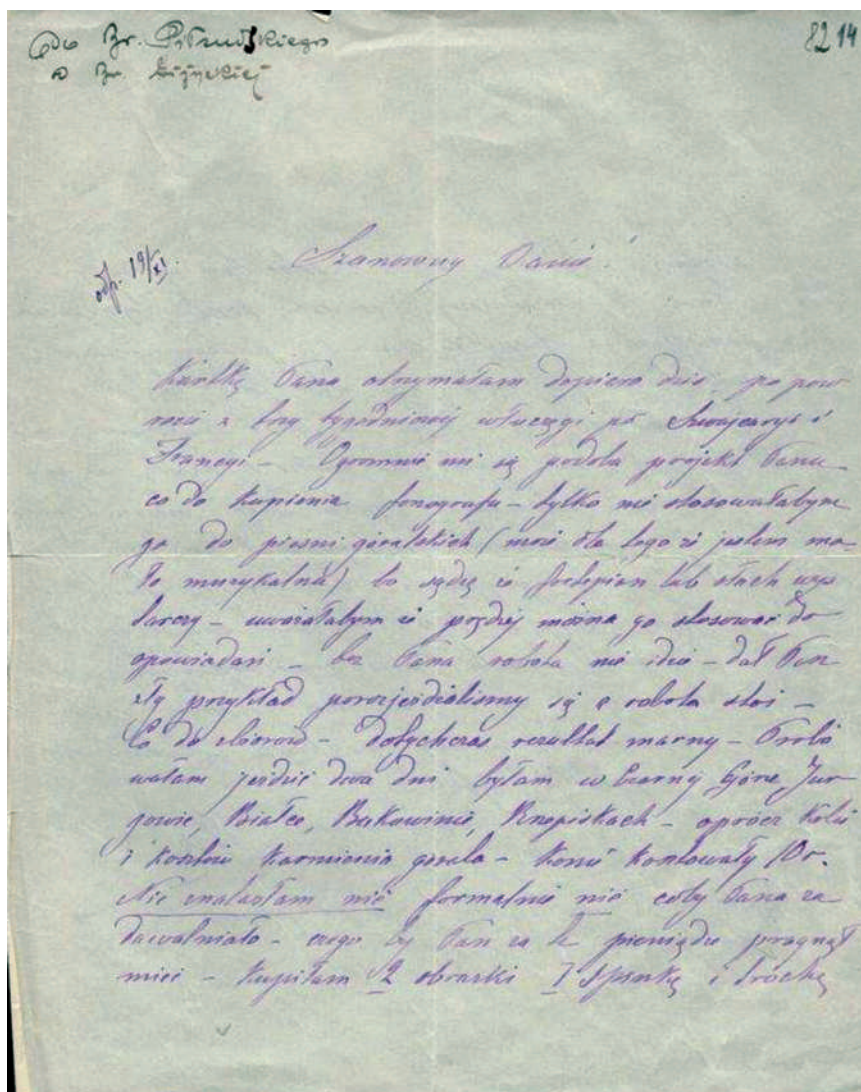 Do Br. Piłsudskiego
o Br. Giżyckiej
82 14
odp. 19/XI.
Szanowny Panie!
Kartkę Pana otrzymałam dopiero dziś, po pow
rocie z trzy tygodniowej włóczęgi po Szwajcaryi i
Francyi – Ogromnie mi się podoba projekt Pana
co do kupienia fonografu – tylko nie stosowałabym
go do pieśni góralskich (może dla tego że jestem ma-
ło muzykalna) bo sądzę że fortepian lub słuch wys
tarczy – uważałabym że prędzej można go stosować do
opowiadań – bez Pana robota nie idzie – dał Pan
zły przykład porozjeżdżaliśmy się a robota stoi –
Co do zbiorów – dotychczas rezultat marny – Probo
wałam jeździć dwa dni byłam w Czarny Górze, Jur
gowie, Białce, Bukowinie, Rzepiskach – oprócz
i kosztów karmienia górala – konie kosztowały 10r.
Nic znalazłam nic formalnie nic coby Pana za
dawalniało – czego by Pan za pieniądze pragnął
mieć – Kupiłam 2 obrazki 1 łyżkę i trochę